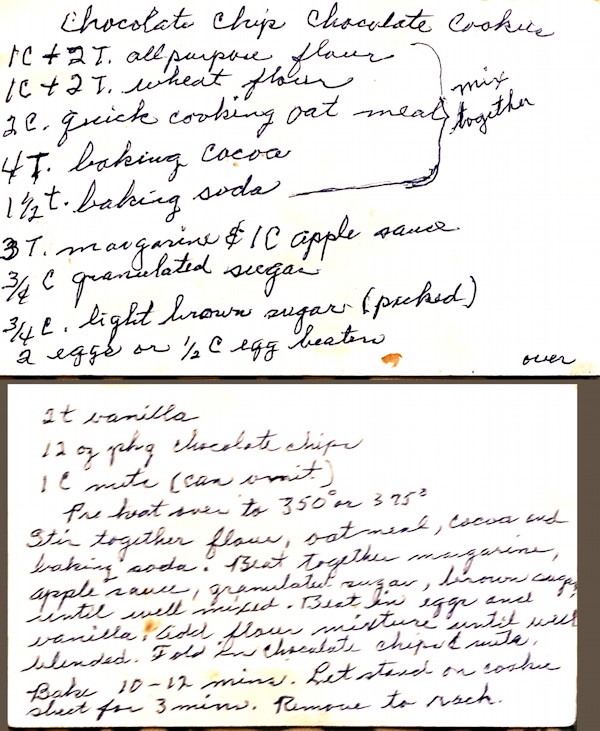 Chocolate Chip Chocolate Cookies
1C + 2 T. all purpose flour
1C + 2 T. wheat flour
2C. quick cooking oat meal
4T. baking cocoa
1 1/2 t. baking soda
mix
together
3 T. margarine & 1C apple sauce
3/4 C granulated sugar
3/4 C. light brown sugar (packed)
2 eggs or 1/2 C egg beaters
over
2t vanilla
12 oz pkg chocolate chips
1 C nuts (can omit)
Pre heat oven to 350° or 375°
Stir together flour, oat meal, cocoa and
baking soda. Beat together margarine,
apple sauce, granulated sugar, brown sugar
until well mixed. Beat in eggs and
vanilla. Add flour mixture until well
blended. Fold in chocolate chips & nuts.
Bake 10-12 mins. Let stand on cookie
sheet for 3 mins. Remove to rack.